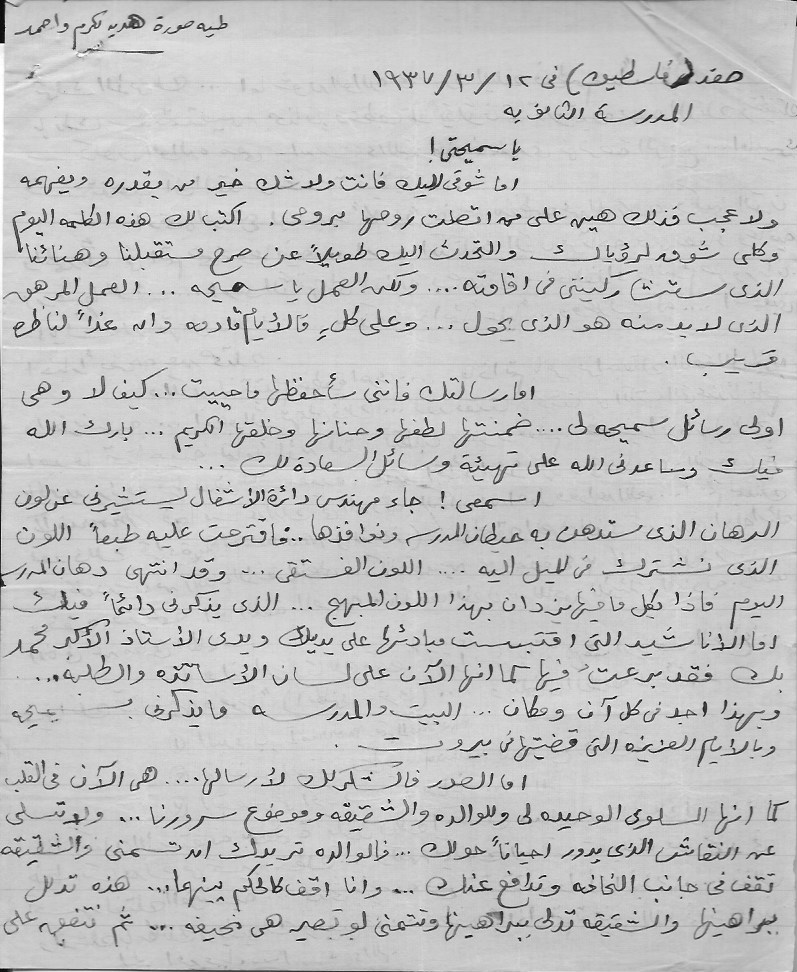 طيه صورة هديه لكرم واحمد
صفد (فلسطين) في ١٢ /٣/ ١٩٣٧
المدرسة الثانويه
يا سميحتي !
اما شوقي اليك فانت ولا شك خير من يقدره ويفهمه
ولا عجب فذلك هين على من اتصلت روحها بروحي . اكتب لك هذه الكلمه اليوم
وكلي شوق لرؤياك والتحدث اليك طويلاً عن صرح مستقبلنا وهنائنا
الذي ستشاركينني في اقامته .... ولكن العمل يا سميحه ... العمل المرهق
الذي لا بد منه هو الذي يحول ... وعلى كلٍ فالأيام قادمه وان غداً لناظره
قريب .
اما رسالتك فانني سأحفظها ما حييت ... كيف لا وهي
اولى رسائل سميحه لي .... ضمنتها لطفها وحنانها وخلقها الكريم ... بارك الله
فيك وساعدني الله على تهيئة وسائل السعادة لك ...
اسمعي ! جاء مهندس دائرة الاشغال ليستشيرني عن لون
الدهان الذي ستدهن به حيطان المدرسه ونوافذها .. فاقترحت عليه طبعاً اللون
الذي نشترك في الميل اليه .... اللون الفستقي ... وقد انتهى دهان المدرسه
اليوم فاذا بكل ما فيها يزدان بهذا اللون المبهج ... الذي يذكرني دائماً فيك
اما الأناشيد التي اقتبست مبادئها على يديك ويدي الأستاذ الأكبر محمد
بك فقد برعتُ فيها كما انها الآن على لسان الأساتذه والطلبة ...
وبهذا اجد في كل آن ومكان ... البيت والمدرسه ما يذكرني بسميحه
وبالايام العزيزه التي قضيتها في بيروت .
اما الصور فالشكر لك لأرسالها .... هي الآن في القلب
كما انها السلوى الوحيده لي وللوالده والشقيقه وموضوع سرورنا ... ولا تسلي
عن النقاش الذي يدور احياناً حولك ... فالوالده تريدك ان تسمني والشقيقه
تقف في جانب النحافه وتدافع عنك ... وانا اقف كالحكم بينهما ... هذه تدلل
ببراهينها والشقيقه تدلي ببراهينها وتتمنى لو تصير هي نحيفه ... ثم نتفق على